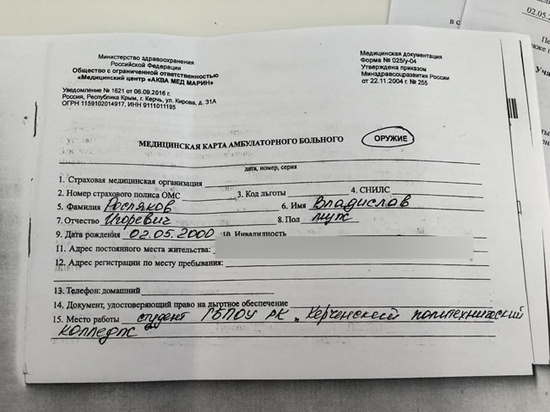 Министерство здравоохранения
Российской Федерации
Общество с ограниченной ответственностью
«Медицинский центр «АКВА МЕД МАРИН»
Уведомление № 1621 от 06.09.2016 г.
Россия, Республика Крым, г. Керчь, ул. Кирова, д. 31А
ОГРН 1159102014917, ИНН 9111011195
Медицинская документация
Форма № 025/у-04
Утверждена приказом
Минздравсоцразвития России
от 22.11.2004 г. № 255
02.05
МЕДИЦИНСКАЯ КАРТА АМБУЛАТОРНОГО БОЛЬНОГО
ОРУЖИЕ
дата, номер, серия
1. Страховая медицинская организация
2. Номер страхового полиса ОМС 3. Код льготы 4. СНИЛС
5. Фамилия Росляков 6. Имя Владислав
7. Отчество Игоревич 8. Пол муж
9. Дата рождения 02.05.2000 10. Инвалидность
11. Адрес постоянного места жительства:
12. Адрес регистрации по месту пребывания:
13. Телефон: домашний
14. Документ, удостоверяющий право на льготное обеспечение
15. Место работы студент ГБПОУ РК „Керченский политехнический
колледж"